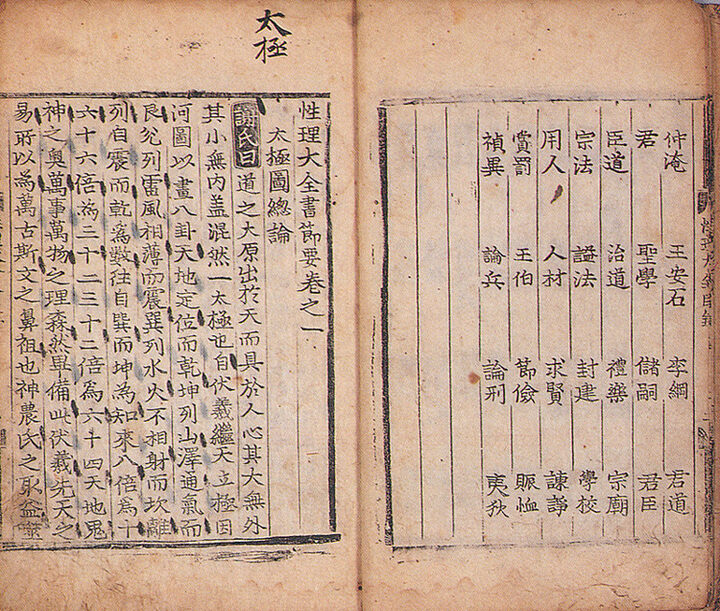 仲淹 王安石 李綱 君道
君 聖學 儲嗣 君臣
臣道 治道 禮樂 宗廟
宗法 謚法 封建 學校
用人 人材 求賢 諫諍
賞罰 王伯 節儉 賑恤
禎異 論兵 論刑 夷狄
太極
性理大全書節要卷之一
太極圖總論
謝氏曰道之大原出於天而具於人心其大無外
其小無内盖混然一太極也自伏羲繼天立極因
河圖以畫八卦天地定位而乾坤列山澤通氣而
艮兊列雷風相薄而震巽列水火不相射而坎離
列自震而乾爲數往自巽而坤為知來八倍為十
六十六倍為三十二三十二倍為六十四天地鬼
神之奧萬事萬物之理森然畢備此伏羲先天之
易所以為萬古斯文之鼻祖也神農氏之取益噬